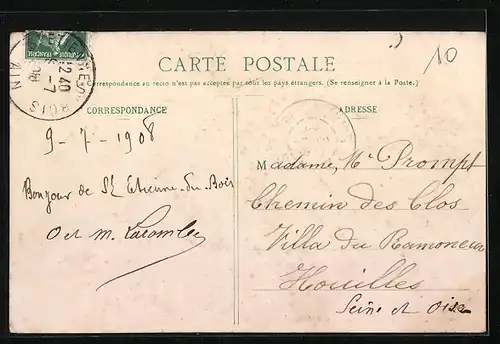 10
CARTE POSTALE
La correspondance au recto n'est pas acceptée par tous les pays étrangers. (Se renseigner à la Poste.)
CORRESPONDANCE
ADRESSE
9-7-1908
Bonjour de St Etienne-du-Bois
O et M. Lacombe
Madame, Me Prompt
Chemin des Clos
Villa du Ramoneau
Houilles
Seine et Oise
12 40
9 -7
AIN